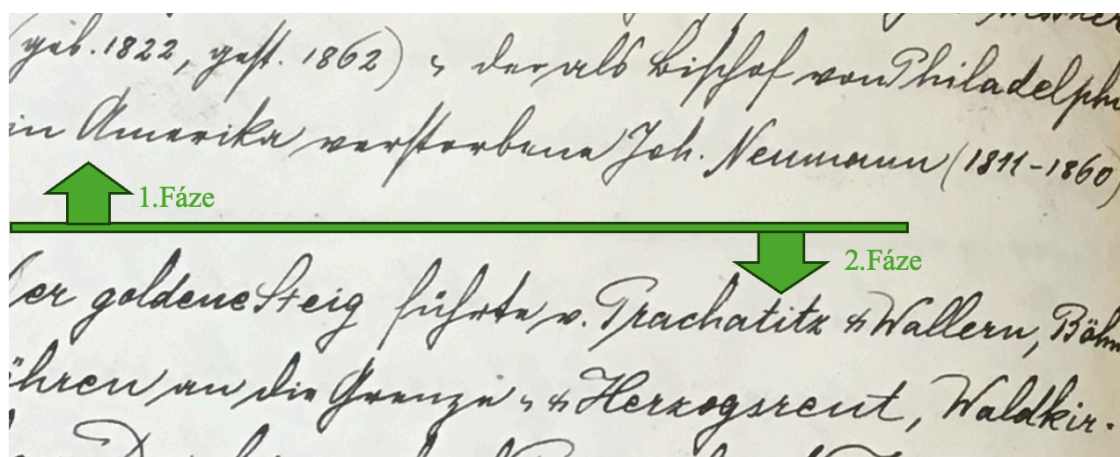 (geb. 1822, gest. 1862) u. der als Bischof von Philadelph
in Amerika verstorbene Joh. Neumann (1811-1860)
1.Fáze
2.Fáze
er goldene Steig führte v. Prachatitz ü Wallern, Böhm
öhren an die Grenze u. ü Herzogsreut, Waldkir-